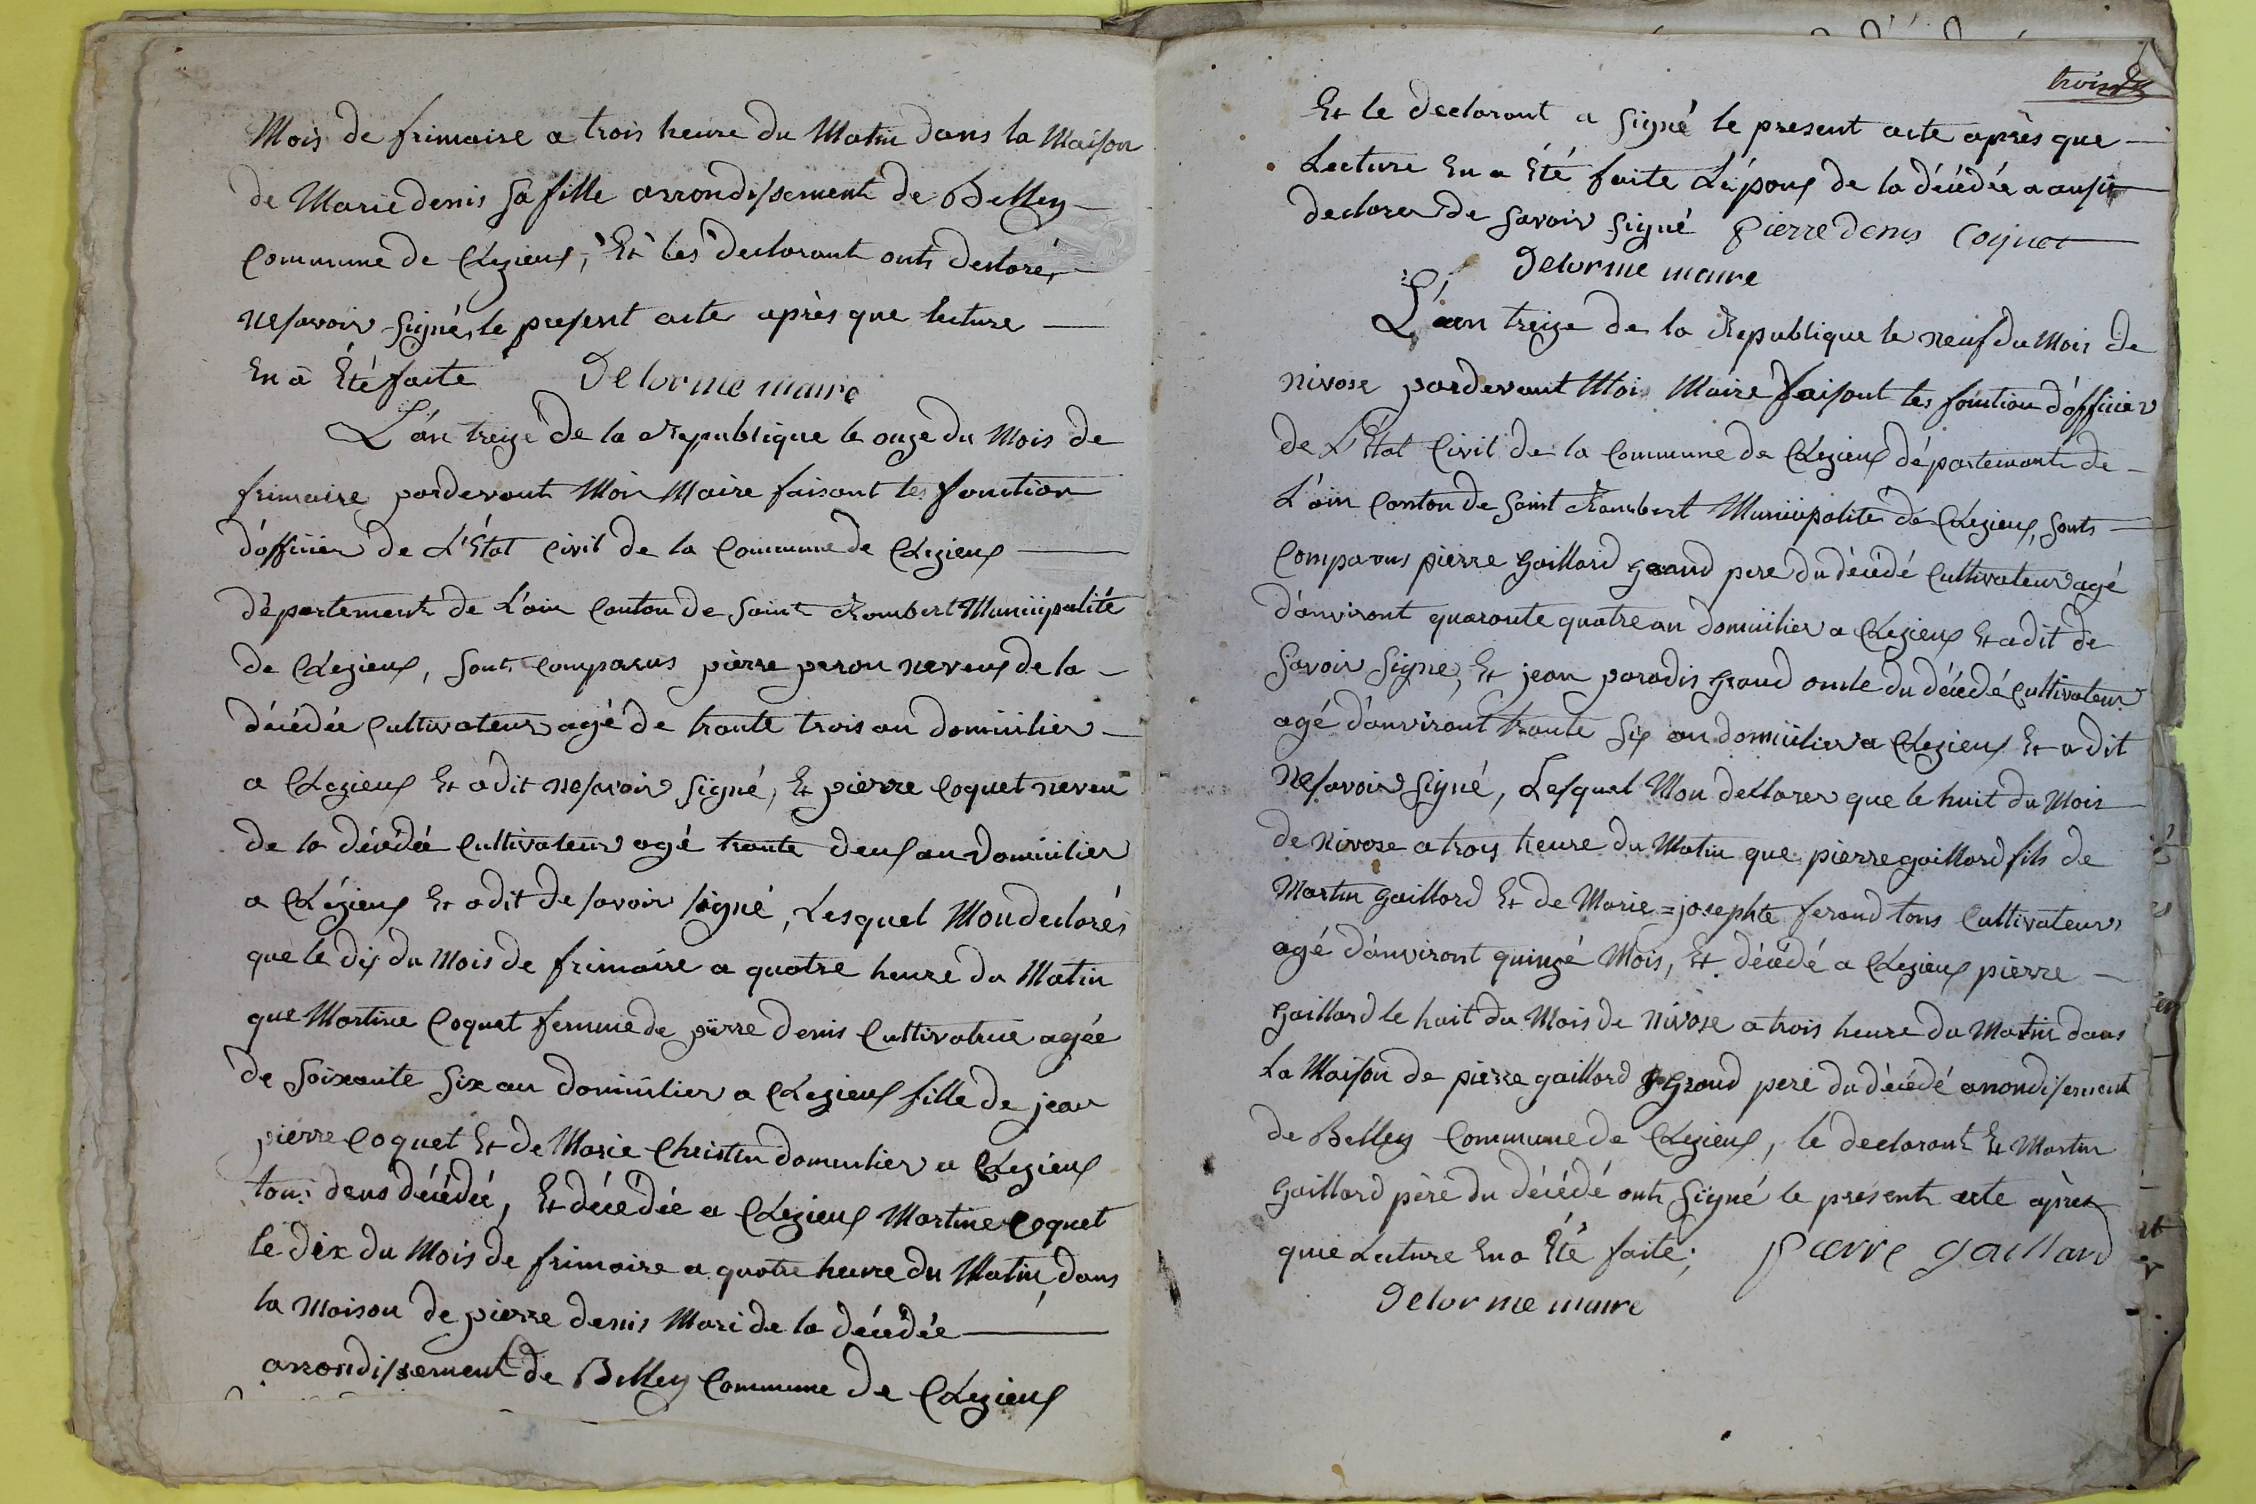 Mois de frimaire a trois heure du Matin dans la Maison
de Marie denis sa fille arrondissement de Belley
Commune de Clezieux, Et les declarant onts declarés
nesavoir Signé, le present acte après que lecture
En à Été faite Delorme maire
L'an treize de la Republique le onze du Mois de
frimaire pardevant Moi Maire faisant les fonction
d'officier de L'État Civil de la Commune de Clezieux
département de L'ain Canton de Saint Rambert Municipalité
de Clezieux, Sont Comparus pierre peron neveux de la
décédée Cultivateur agé de trante trois an domicilier
a Clezieux Et a dit nesavoir Signé, Et pierre Coquet neveu
de la décédée Cultivateur agé trante deux an domicilier
a Clézieux Et a dit de savoir signé, Lesquel Mon declarés
que le dix du Mois de frimaire a quatre heure du Matin
que Martine Coquet femme de pierre denis Cultivatrice agée
de Soixante Six an domicilier a Clezieux fille de jean
pierre Coquet Et de Marie Christin domicilier a Clezieux
tous deus décédée, Et décédée a Clezieux Martine Coquet
le dix du Mois de frimaire a quatre heure du Matin, dans
la Maison de pierre denis Mari de la décédée
arrondissement de Belley Commune de Clezieux
trois
Et le declarant a Signé le present acte après que
Lecture En a Été faite L'époux de la décédée a aussit
declarer de Savoir Signé pierre denis Coquet
Delorme maire
L'an treize de la Republique le neuf du Mois de
nivose pardevant Moi Maire faisant les fonction d'officier
de L'Etat Civil de la Commune de Clezieux département de
L'ain Canton de Saint Rambert Municipalité de Clezieux, Sonts
Comparus pierre gaillard grand pere du décédé Cultivateur agé
d'anviront quarante quatre an domicilier a Clezieux Et a dit de
Savoir Signe, Et jean paradis grand oncle du décédé Cultivateur
agé d'anviront trante Six an domicilier a Clezieux Et a dit
Nesavoir Signé, Lesquel Mon declarer que le huit du Mois
de nivose a troys heure du Matin que pierre gaillard fils de
Martin gaillard Et de Marie=josephte ferand tous Cultivateur
agé d'anviront quinzé Mois, Et décédé a Clezieux pierre
gaillard le huit du Mois de Nivose a trois heure du Matin dans
La Maison de pierre gaillard grand peré du décédé arrondisement
de Belley Commune de Clezieux, le declarant Et Martin
gaillard père du décédé onts Signé le présent acte après
que Lecture En a Été faite; pierre gaillard
Delorme maire